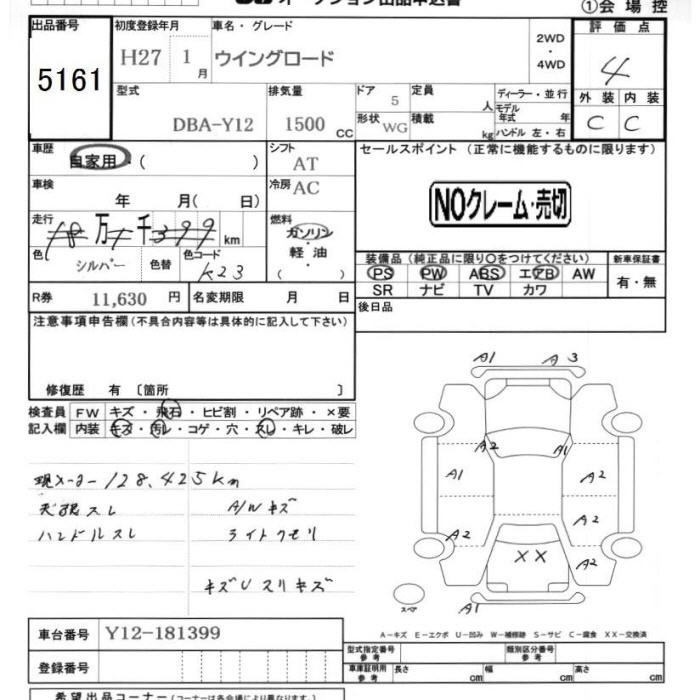 オークション出品申込書
①会場控
出品番号
5161
初度登録年月
H27 1月
車名・グレード
ウイングロード
2WD
・
4WD
評価点
4
外装 内装
C C
型式
DBA-Y12
排気量
1500 CC
ドア
5
形状
WG
定員
人
積載
kg
ディーラー・並行
モデル
年式 年
ハンドル 左・右
車歴
自家用・( )
シフト
AT
セールスポイント (正常に機能するものに限ります)
NOクレーム・売切
車検
年 月( 日)
冷房
AC
走行
万 千 399 km
燃料
ガソリン
・
軽油
( )
色
シルバー
色替
色コード
K23
装備品 (純正品に限り〇をつけてください)
PS PW ABS エアB AW
SR ナビ TV カワ
新車保証書
有・無
R券 11,630 円
名変期限 月 日
後日品
注意事項申告欄(不具合内容等は具体的に記入して下さい)
修復歴 有 〔箇所 〕
検査員
記入欄
FW キズ・飛石・ヒビ割・リペア跡・×要
内装 キズ・汚レ・コゲ・穴・スレ・キレ・破レ
現メーター 128,425km
天張スレ A/Wキズ
ハンドルスレ ライトクモリ
キズUスリキズ
A1 A3
A2 A1
A1 A2
A2
A2 XX A2
A1
スペア
A-キズ E-エクボ U-凹み W-補修跡 S-サビ C-腐食 XX-交換済
車台番号 Y12-181399
登録番号
型式指定番号
参考
類別区分番号
参考
車庫証明用
参考
長さ cm 幅 cm 高さ cm
希望出品コーナー(コーナーは各会場により異なります)